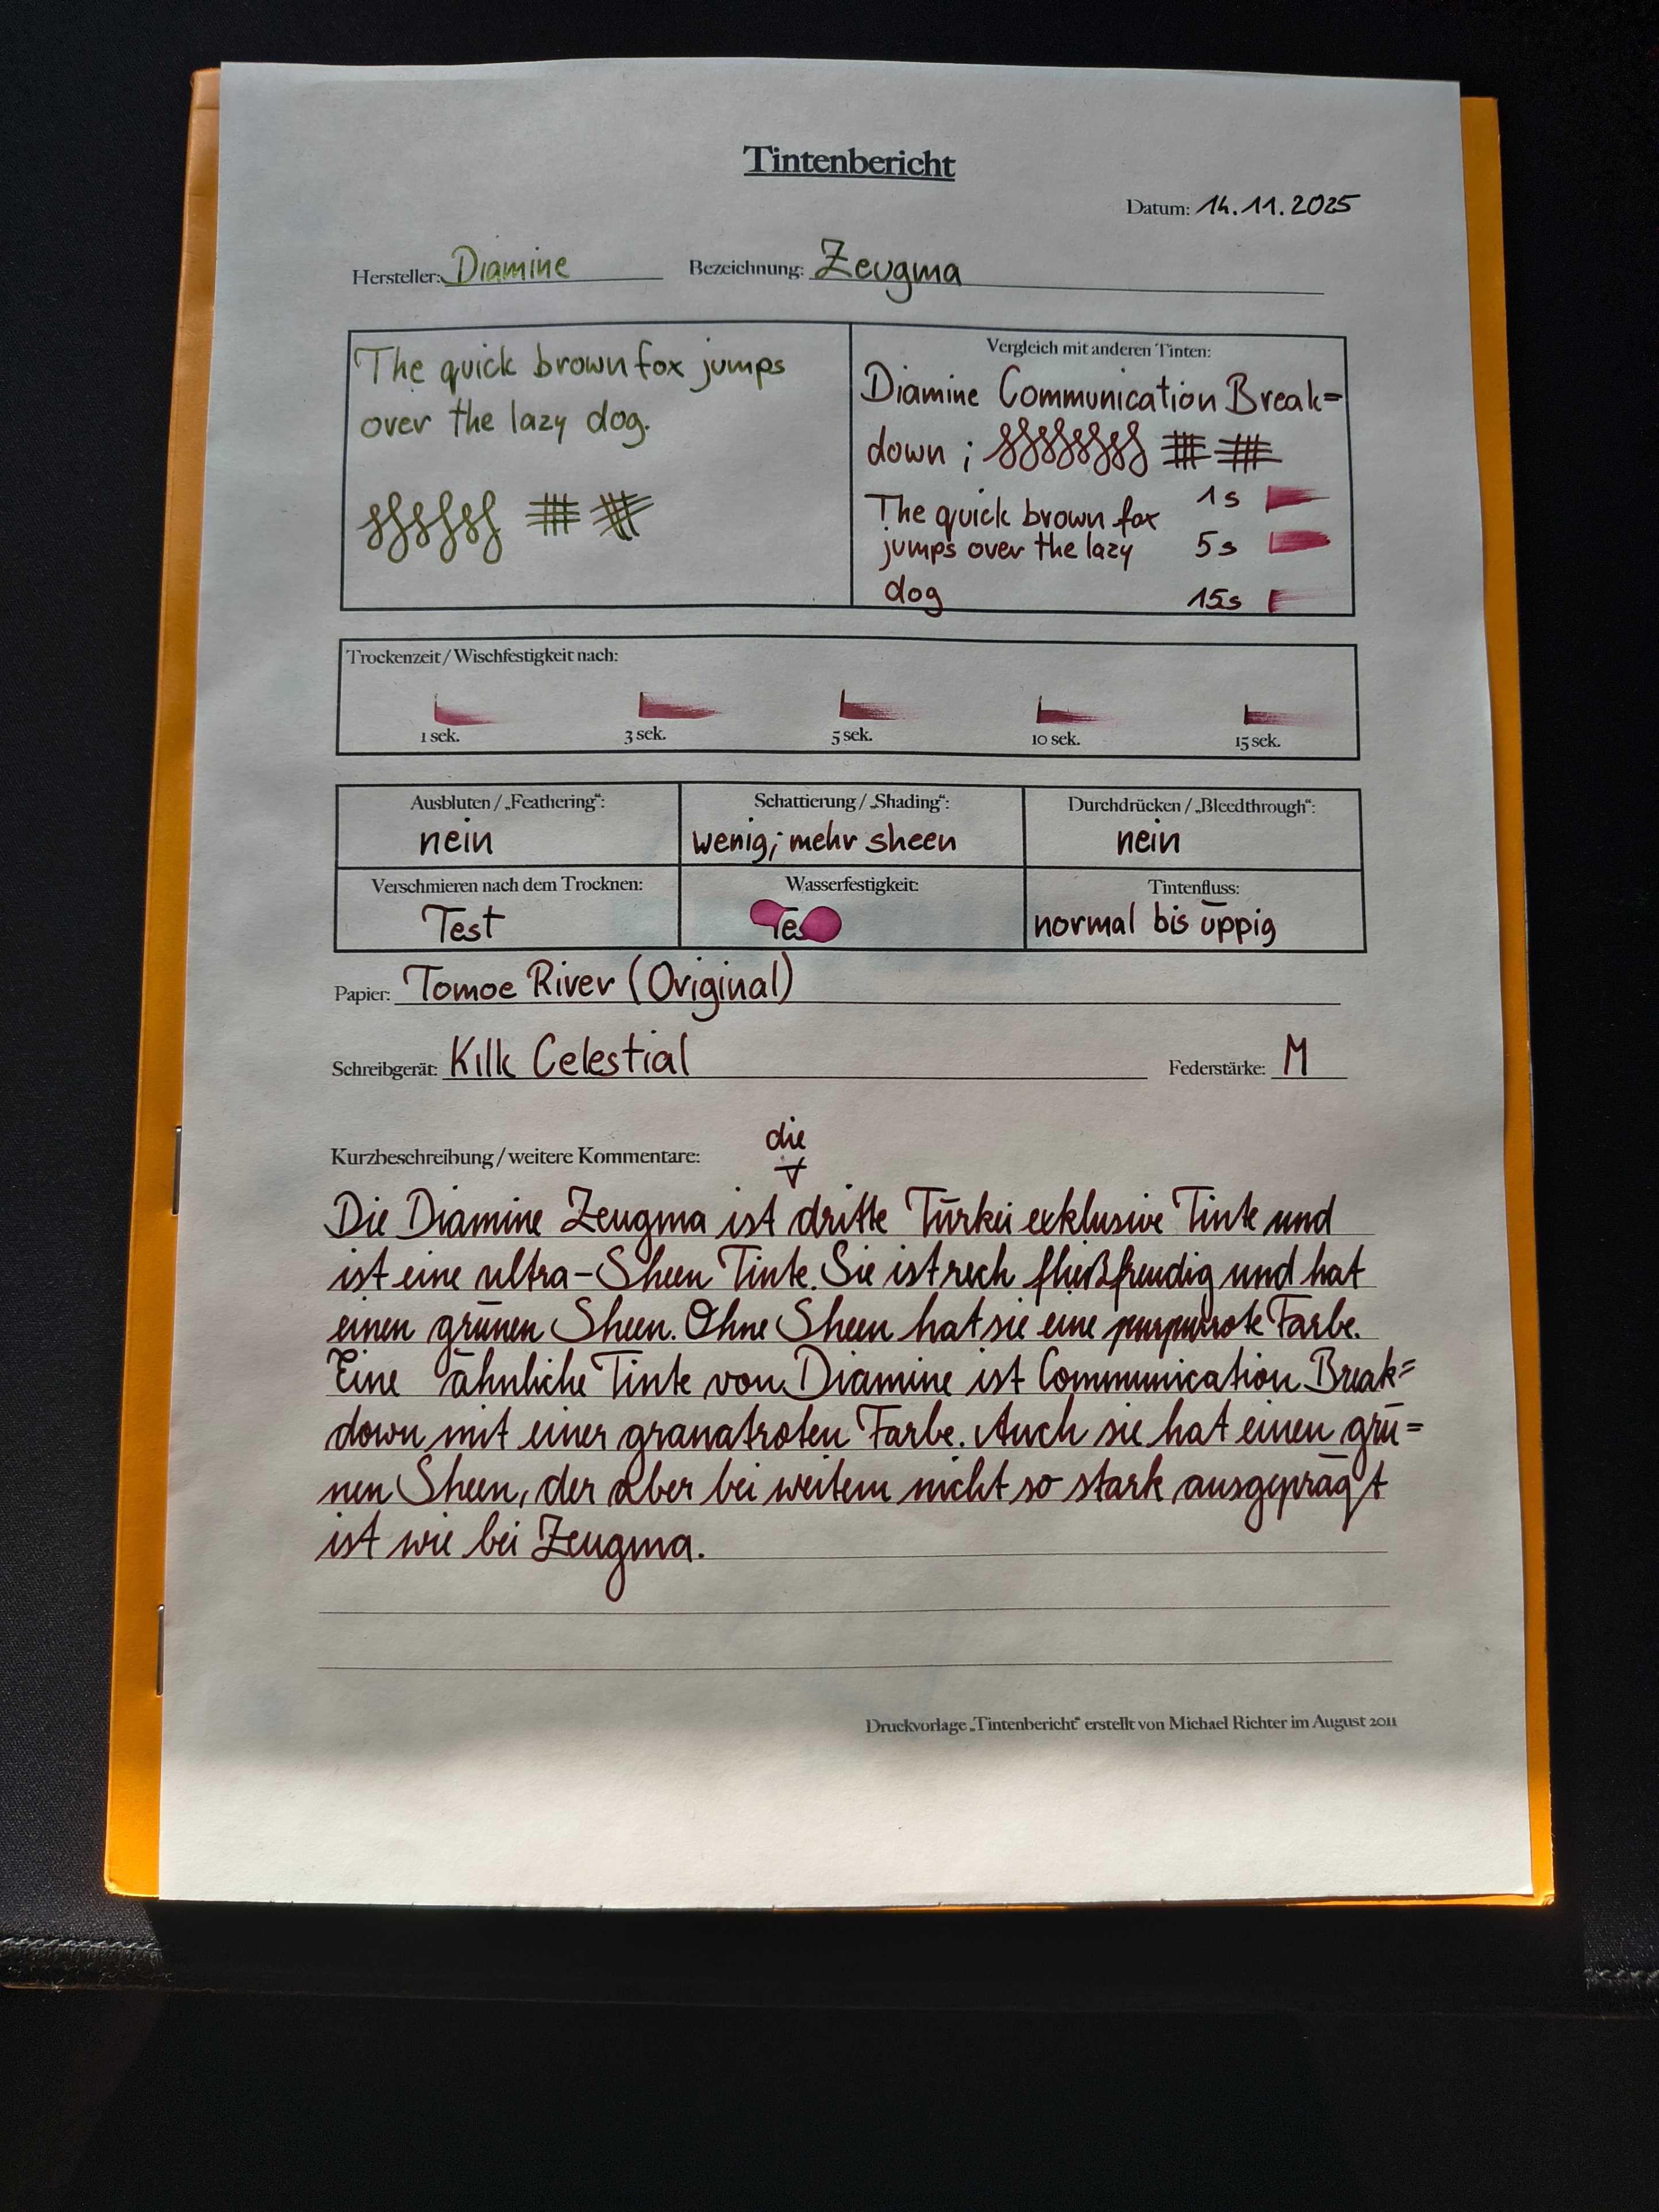 Tintenbericht
Datum: 14.11.2025
Hersteller: Diamine Bezeichnung: Zeugma
The quick brown fox jumps
over the lazy dog.
Vergleich mit anderen Tinten:
Diamine Communication Break=
down ;
The quick brown fox
jumps over the lazy
dog
1s
5s
15s
Trockenzeit / Wischfestigkeit nach:
1 sek. 3 sek. 5 sek. 10 sek. 15 sek.
Ausbluten / „Feathering“: Schattierung / „Shading“: Durchdrücken / „Bleedthrough“:
nein wenig; mehr sheen nein
Verschmieren nach dem Trocknen: Wasserfestigkeit: Tintenfluss:
Test Tes normal bis üppig
Papier: Tomoe River (Original)
Schreibgerät: Kilk Celestial Federstärke: M
Kurzbeschreibung / weitere Kommentare:
die
Die Diamine Zeugma ist dritte Türkei exklusive Tinte und
ist eine ultra-Sheen Tinte. Sie ist rech fließfreudig und hat
einen grünen Sheen. Ohne Sheen hat sie eine purpurrote Farbe.
Eine ähnliche Tinte von Diamine ist Communication Break=
down mit einer granatroten Farbe. Auch sie hat einen grü=
nen Sheen, der aber bei weitem nicht so stark ausgeprägt
ist wie bei Zeugma.
Druckvorlage „Tintenbericht“ erstellt von Michael Richter im August 2011